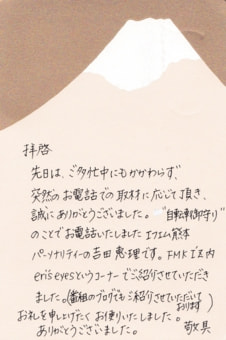 拝啓
先日は、ご多忙中にもかかわらず、
突然のお電話での取材に応じて頂き、
誠にありがとうございました。"自転車御守り"
のことでお電話いたしました エフエム熊本
パーソナリティーの吉田恵理です。FMK
eris eyesというコーナーでご紹介させていただき
ました。(番組のブログでもご紹介させていただいて
おります)
お礼を申し上げたく お便りいたしました。
ありがとうございました。 敬具